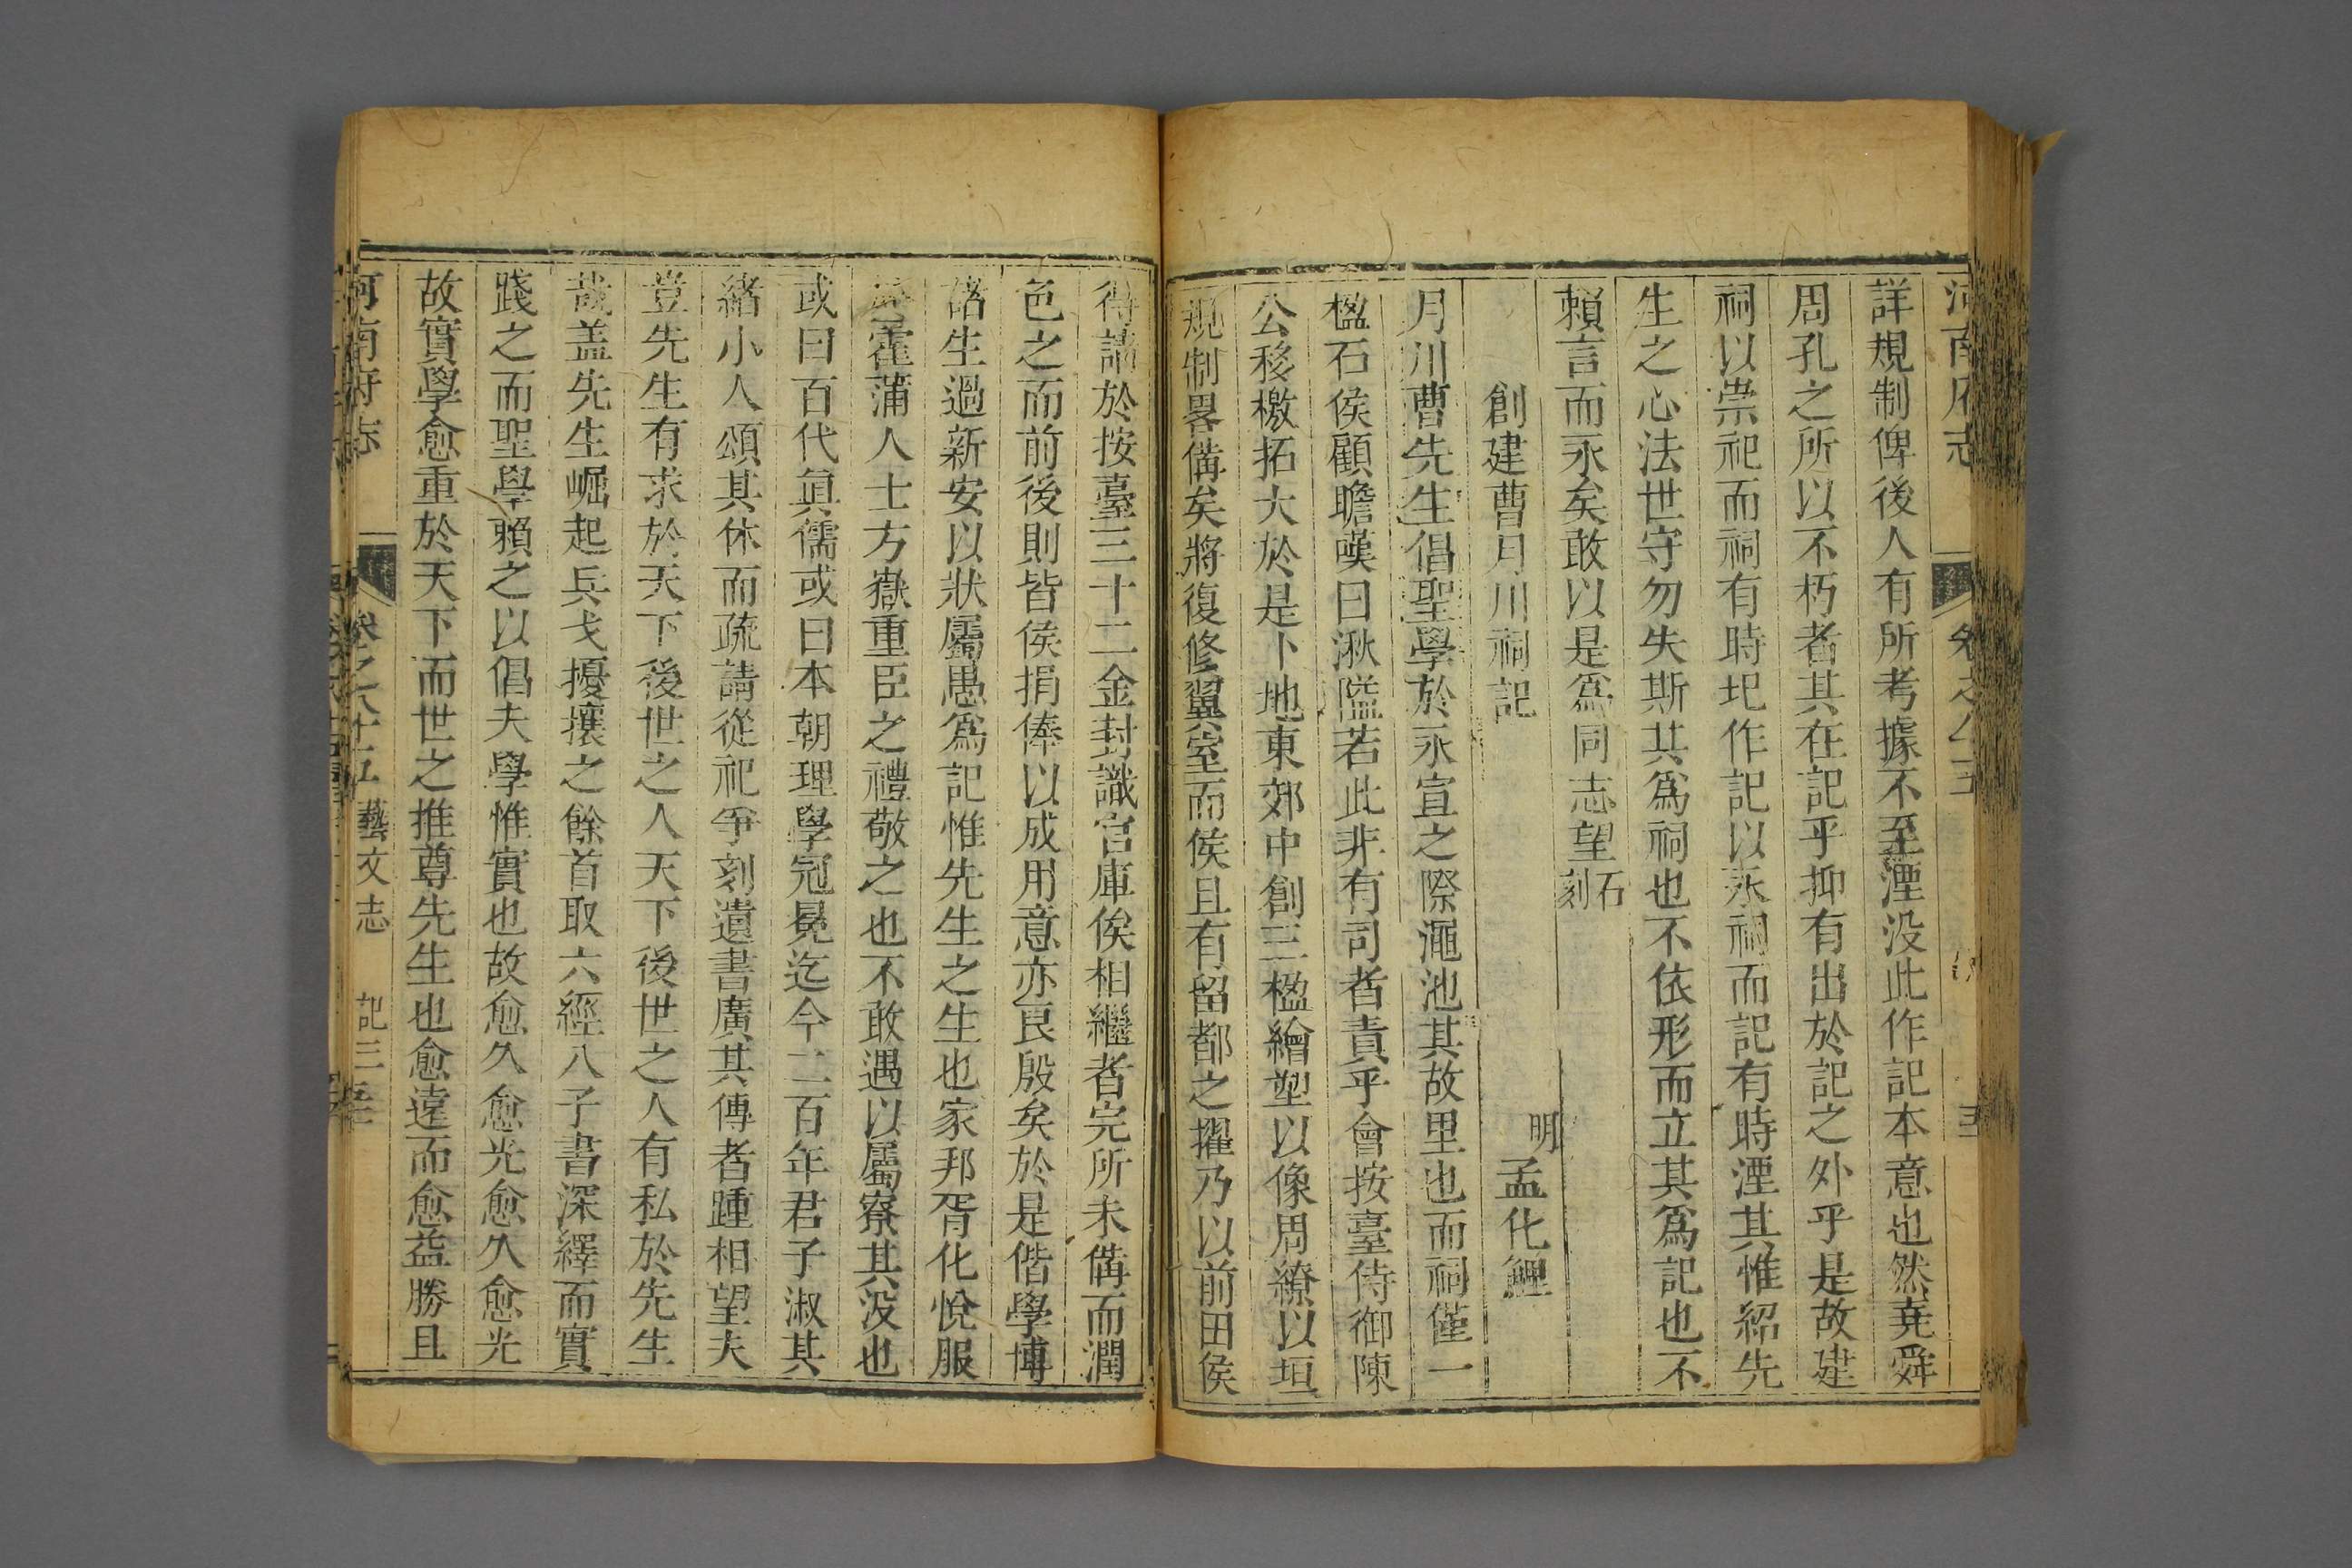 詳規制俾後人有所考據不至湮没此作記本意也然堯舜
周孔之所以不朽者其在記乎抑有出於記之外乎是故建
祠以崇祀而祠有時圯作記以永祠而記有時湮其惟紹先
生之心法世守勿失斯其爲祠也不依形而立其爲記也不
賴言而永矣敢以是爲同志望石刻
創建曹月川祠記 明孟化鯉
月川曹先生倡聖學於永宣之際澠池其故里也而祠僅一
楹石侯顧瞻嘆曰湫隘若此非有司者責乎會按臺侍御陳
公移檄拓大於是卜地東郊中創三楹繪塑以像周繚以垣
規制畧備矣將復修翼室而侯且有留都之擢乃以前田侯
得請於按臺三十二金封識宫庫俟相繼者完所未備而潤
色之而前後則皆侯捐俸以成用意亦良殷矣於是偕學博
諸生過新安以狀屬愚爲記惟先生之生也家邦胥化悅服
霍蒲人士方嶽重臣之禮敬之也不敢遇以屬寮其没也
或曰百代眞儒或曰本朝理學冠冕迄今二百年君子淑其
緒小人頌其休而疏請從祀爭刻遺書廣其傳者踵相望夫
豈先生有求於天下後世之人天下後世之人有私於先生
哉盖先生崛起兵戈擾攘之餘首取六經八子書深繹而實
踐之而聖學賴之以倡夫學惟實也故愈久愈光愈久愈光
故實學愈重於天下而世之推尊先生也愈遠而愈益勝且
河南府志 卷之八十五 藝文志 記三